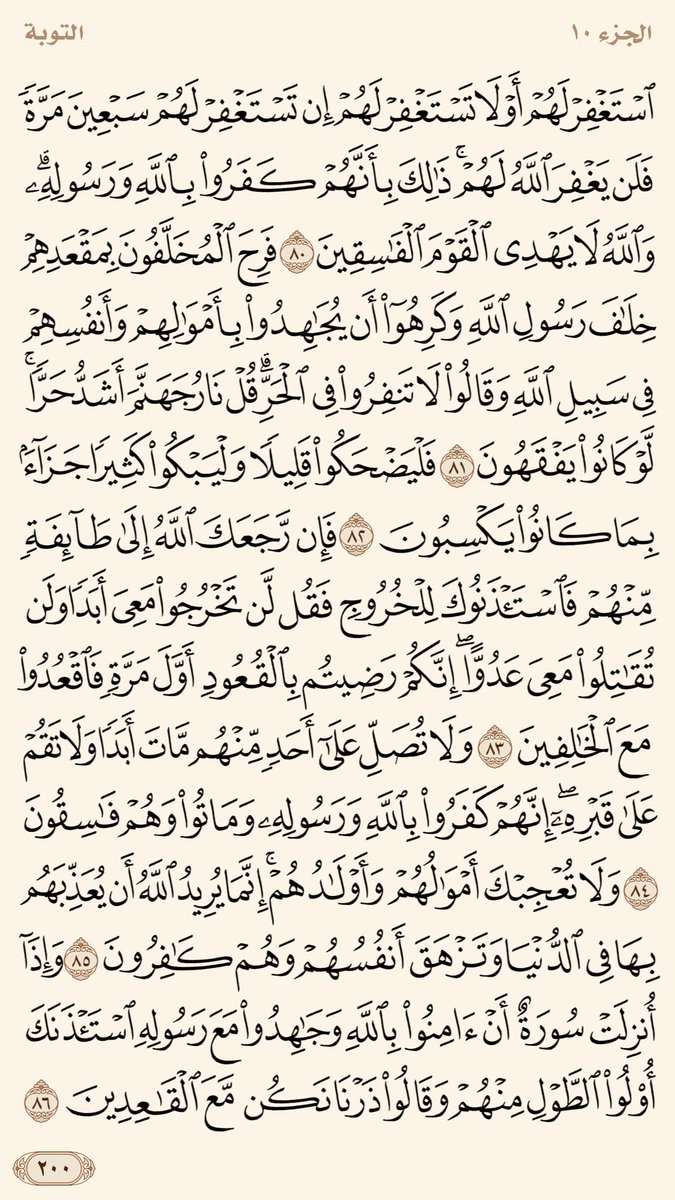 الجزء ١٠
التوبة
ٱسْتَغْفِرْ لَهُمْ أَوْ لَا تَسْتَغْفِرْ لَهُمْ إِن تَسْتَغْفِرْ لَهُمْ سَبْعِينَ مَرَّةً
فَلَن يَغْفِرَ ٱللَّهُ لَهُمْ ۚ ذَٰلِكَ بِأَنَّهُمْ كَفَرُوا۟ بِٱللَّهِ وَرَسُولِهِۦ ۗ
وَٱللَّهُ لَا يَهْدِى ٱلْقَوْمَ ٱلْفَٰسِقِينَ ٨٠ فَرِحَ ٱلْمُخَلَّفُونَ بِمَقْعَدِهِمْ
خِلَٰفَ رَسُولِ ٱللَّهِ وَكَرِهُوٓا۟ أَن يُجَٰهِدُوا۟ بِأَمْوَٰلِهِمْ وَأَنفُسِهِمْ
فِى سَبِيلِ ٱللَّهِ وَقَالُوا۟ لَا تَنفِرُوا۟ فِى ٱلْحَرِّ ۗ قُلْ نَارُ جَهَنَّمَ أَشَدُّ حَرًّا ۚ
لَّوْ كَانُوا۟ يَفْقَهُونَ ٨١ فَلْيَضْحَكُوا۟ قَلِيلًا وَلْيَبْكُوا۟ كَثِيرًا جَزَآءًۢ
بِمَا كَانُوا۟ يَكْسِبُونَ ٨٢ فَإِن رَّجَعَكَ ٱللَّهُ إِلَىٰ طَآئِفَةٍ
مِّنْهُمْ فَٱسْتَـْٔذَنُوكَ لِلْخُرُوجِ فَقُل لَّن تَخْرُجُوا۟ مَعِىَ أَبَدًا وَلَن
تُقَٰتِلُوا۟ مَعِىَ عَدُوًّا ۖ إِنَّكُمْ رَضِيتُم بِٱلْقُعُودِ أَوَّلَ مَرَّةٍ فَٱقْعُدُوا۟
مَعَ ٱلْخَٰلِفِينَ ٨٣ وَلَا تُصَلِّ عَلَىٰٓ أَحَدٍ مِّنْهُم مَّاتَ أَبَدًا وَلَا تَقُمْ
عَلَىٰ قَبْرِهِۦٓ ۖ إِنَّهُمْ كَفَرُوا۟ بِٱللَّهِ وَرَسُولِهِۦ وَمَاتُوا۟ وَهُمْ فَٰسِقُونَ
٨٤ وَلَا تُعْجِبْكَ أَمْوَٰلُهُمْ وَأَوْلَٰدُهُمْ ۚ إِنَّمَا يُرِيدُ ٱللَّهُ أَن يُعَذِّبَهُم
بِهَا فِى ٱلدُّنْيَا وَتَزْهَقَ أَنفُسُهُمْ وَهُمْ كَٰفِرُونَ ٨٥ وَإِذَآ
أُنزِلَتْ سُورَةٌ أَنْ ءَامِنُوا۟ بِٱللَّهِ وَجَٰهِدُوا۟ مَعَ رَسُولِهِ ٱسْتَـْٔذَنَكَ
أُو۟لُوا۟ ٱلطَّوْلِ مِنْهُمْ وَقَالُوا۟ ذَرْنَا نَكُن مَّعَ ٱلْقَٰعِدِينَ ٨٦
٢٠٠